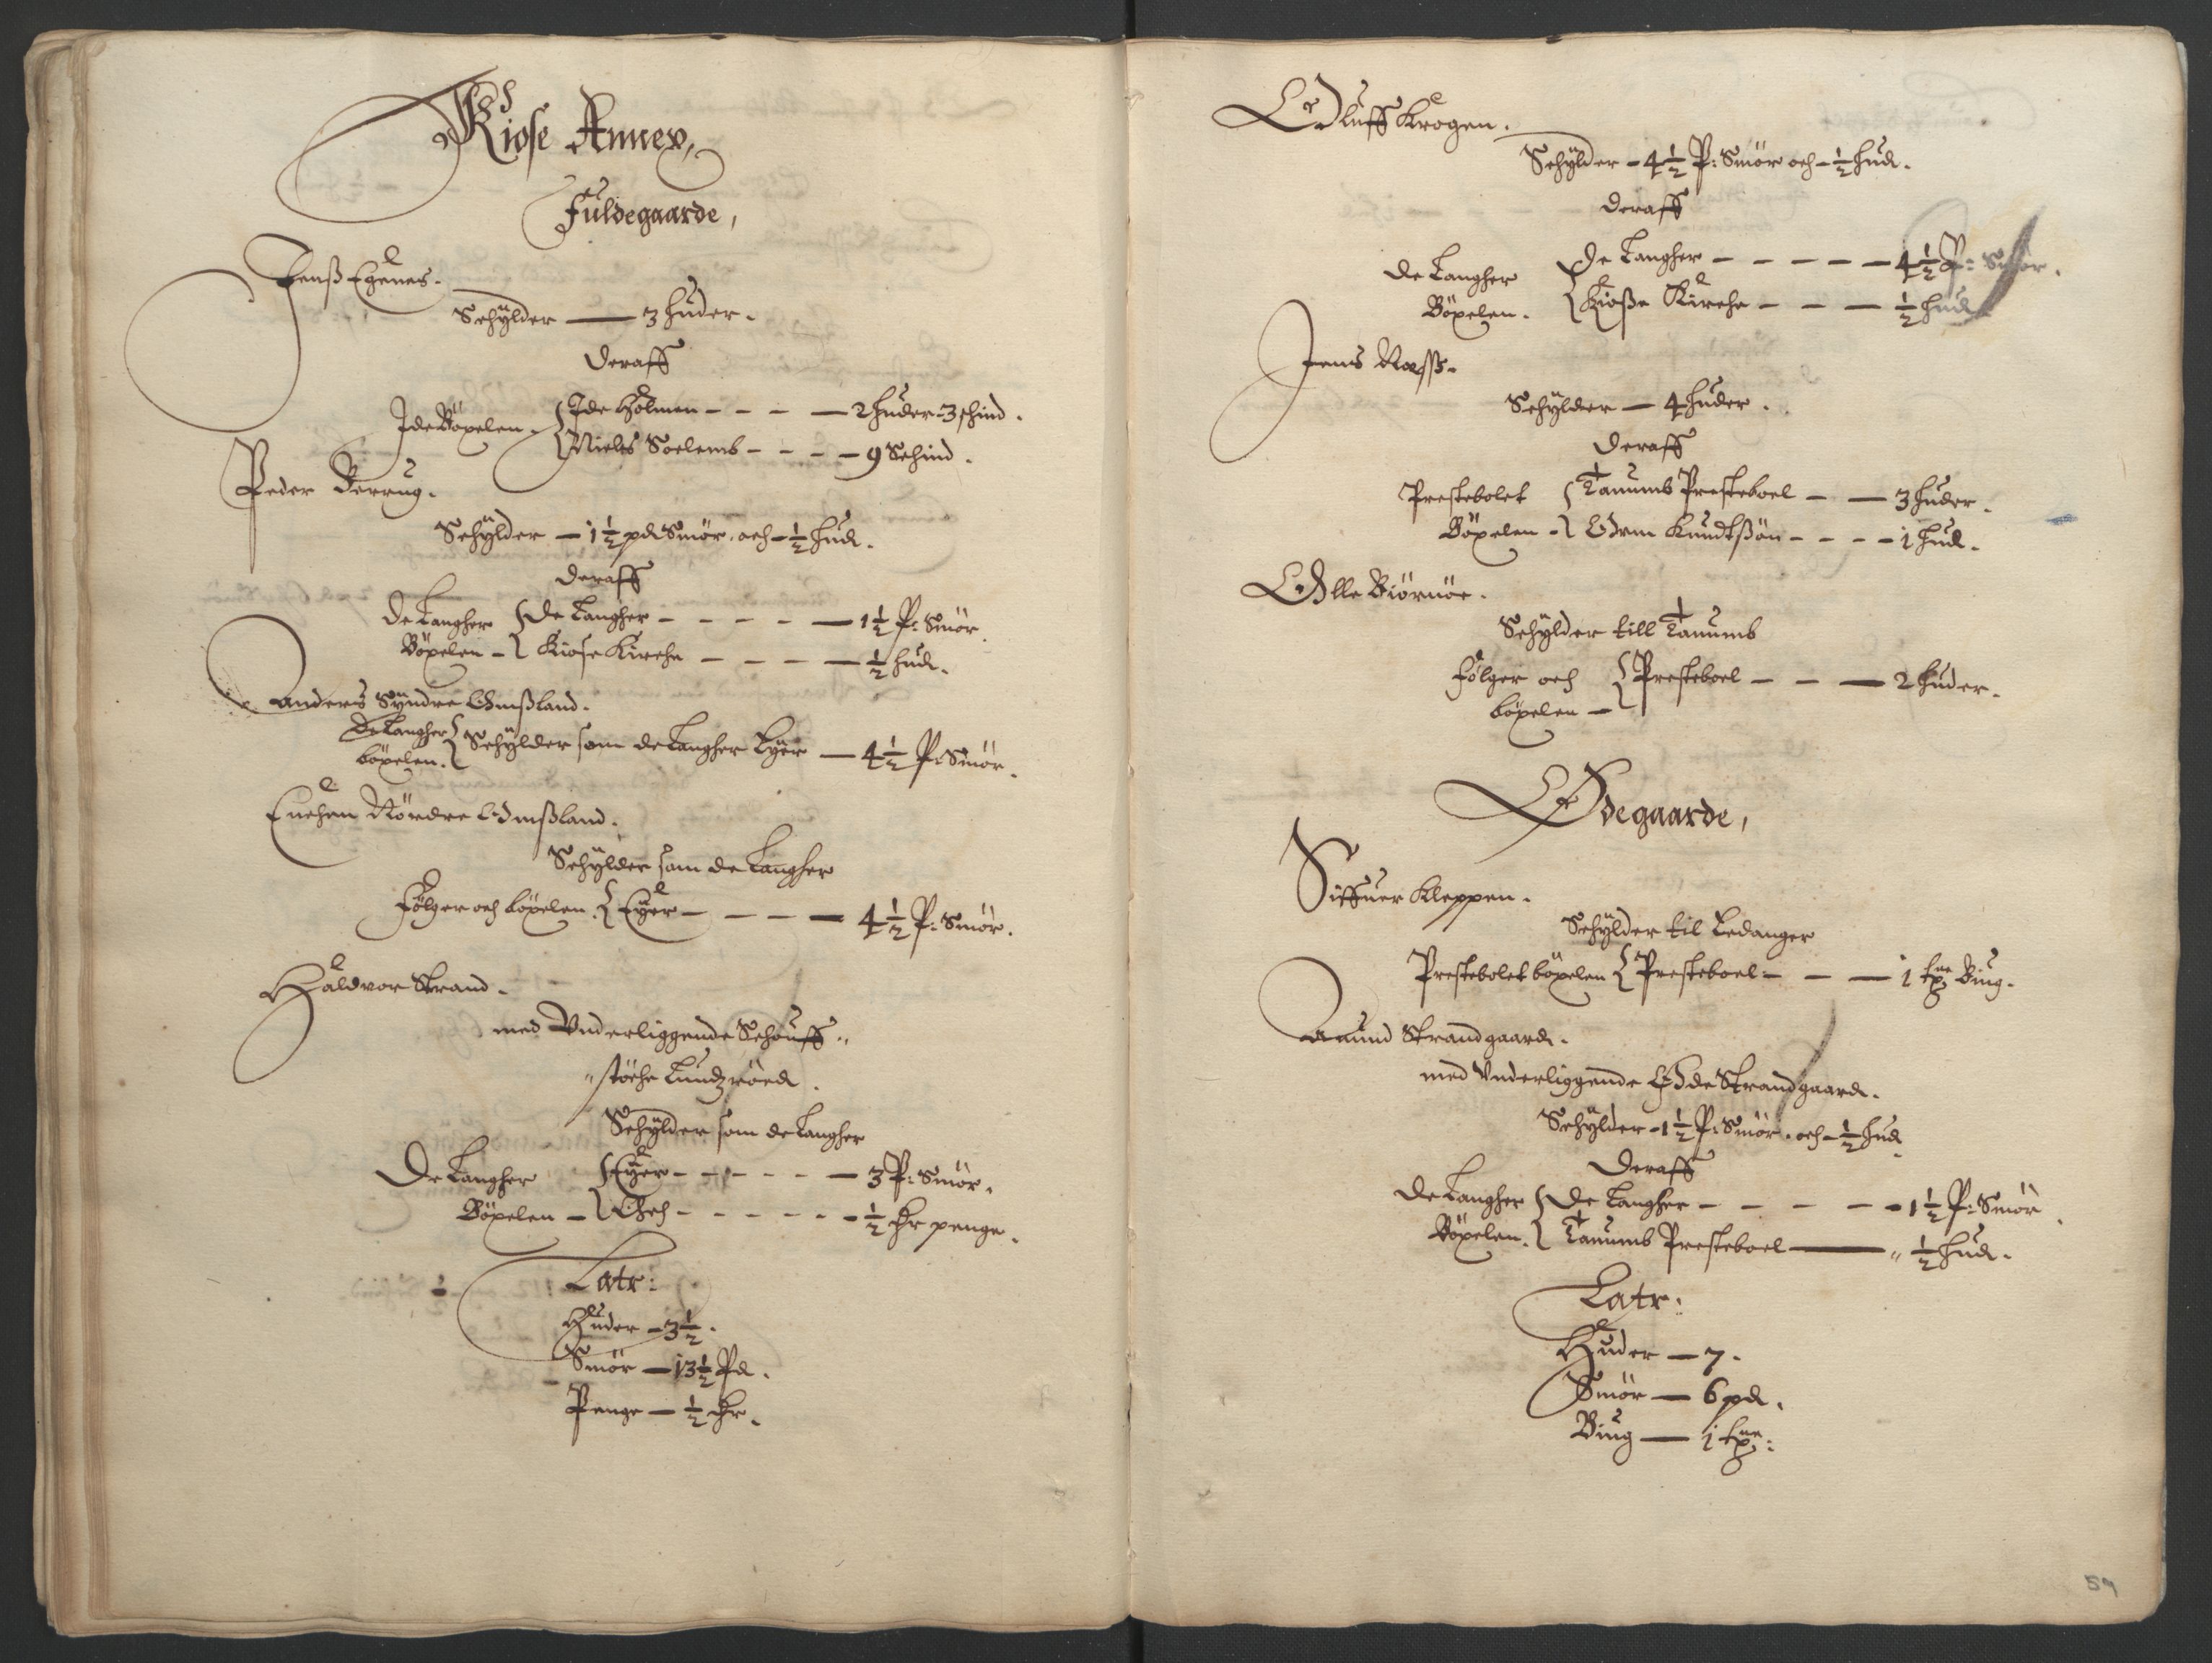 Kiose Annex,
Fuldegaarde,
Jenß Egenes.
Schÿlder — 3 huder.
Deraff
Ide Böxelen. { Ide Holmen — 2 huder-3 schind.
{ Niels Soelemb — 9 Schind.
Peder Berrug.
Schÿlder — 1½ pd Smör. och ½ hud.
Deraff
De Langher { De Langher — 1½ P: Smör.
Böxelen - { Kiose Kirche — ½ hud.
Anders Syndre Omßland.
De Langher { Schÿlder som de Langher Eÿer — 4½ P: Smör.
böxelen.
Euchen Nördre Omßland.
Schÿlder som de Langher
Følger och böxelen. { Eÿer — 4½ P: Smör.
Haldvor Strand.
med Vnderliggende Schouff
støche Lundzröed.
Schÿlder som de Langher
De Langher { Eÿer — 3 P: Smör.
Böxelen - { Och — ½ Or penge.
Latr:
Huder — 3½.
Smör — 13½ Pd.
Penge — ½ Or.
Oluff Krogen.
Schÿlder — 4½ P: Smör och — ½ hud.
Deraff
De Langher { De Langher — 4½ P: Smör.
Böxelen. { Kioße Kirche — ½ hud
Jens Næss.
Schÿlder — 4 huder.
Deraff
Prestebolet { Tanumb Presteboel — 3 huder.
Böxelen - { Orm Knudtßön — 1 hud.
Olle Biörnöe.
Schÿlder till Tanumb
Følger och { Presteboel — 2 huder.
böxelen —
Ødegaarde,
Siffuer Kleppen.
Schÿlder til Hedanger
Prestebolet böxelen { Presteboel — 1 tne Biug.
Amund Strandgaard.
med Vnderliggende Øde Strandgaard.
Schÿlder — 1½ P: Smör. och — ½ hud
Deraff
De Langher { De Langher — 1½ P: Smör.
Böxelen. { Tanumb Presteboel — ½ hud.
Latr:
Huder — 7.
Smör — 6 pd.
Biug — 1 tne:
59